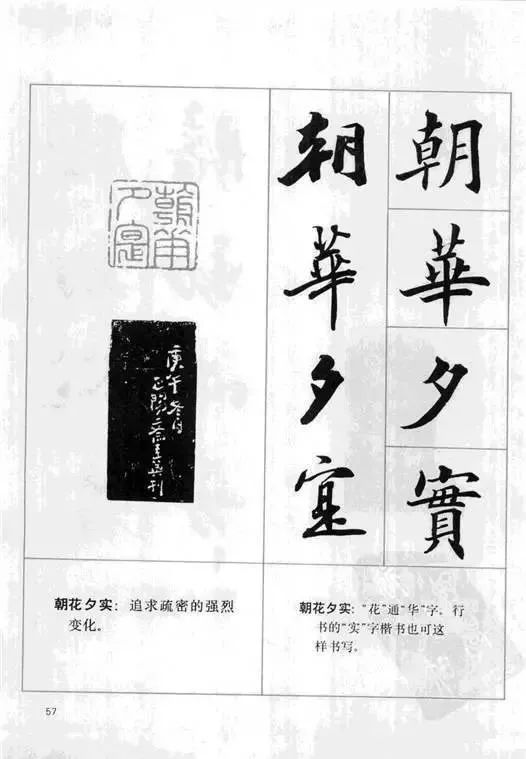 朝華夕實
朝華夕寔
朝華夕寔
庚午冬日
正陽齋主英刊
朝花夕实：追求疏密的强烈
变化。
朝花夕实：“花”通“华”字。行
书的“实”字楷书也可这
样书写。
57